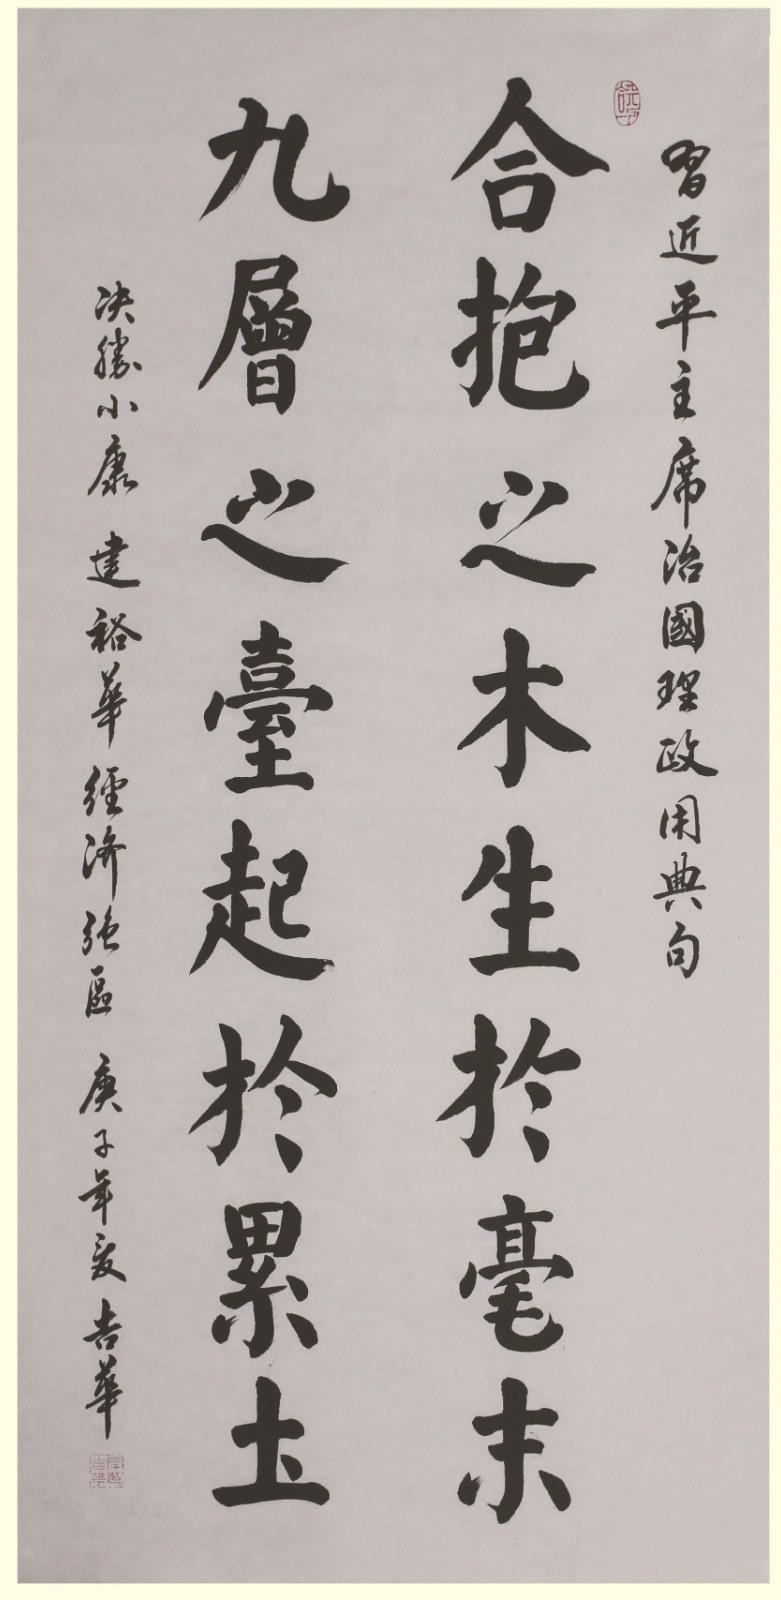 習近平主席治國理政用典句
合抱之木生於毫末
九層之臺起於累土
决勝小康 建裕華經济强區 庚子年夏吉華